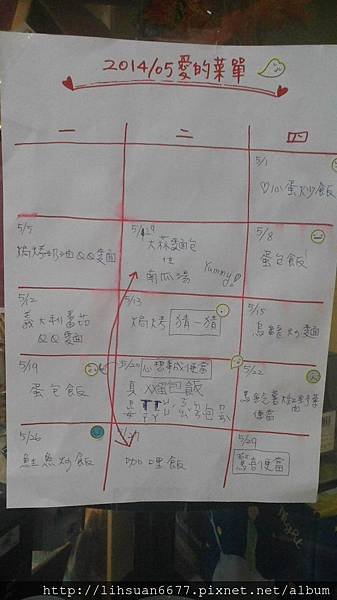 2014/05愛的菜單
一 二 四
5/1
♡心蛋炒飯
5/5
焗烤奶油QQ麵
大蒜麵包
佐
南瓜湯
Yummy!
5/8
蛋包飯
5/12
義大利番茄
QQ麵
5/13
焗烤 猜一猜
5/15
烏龍炒麵
5/19
蛋包飯
5/20 心想事成便當
5/22
便當
5/26
鮭魚炒飯
咖哩飯
5/29
驚喜便當
http://lihsuan6677.pixnet.net/album